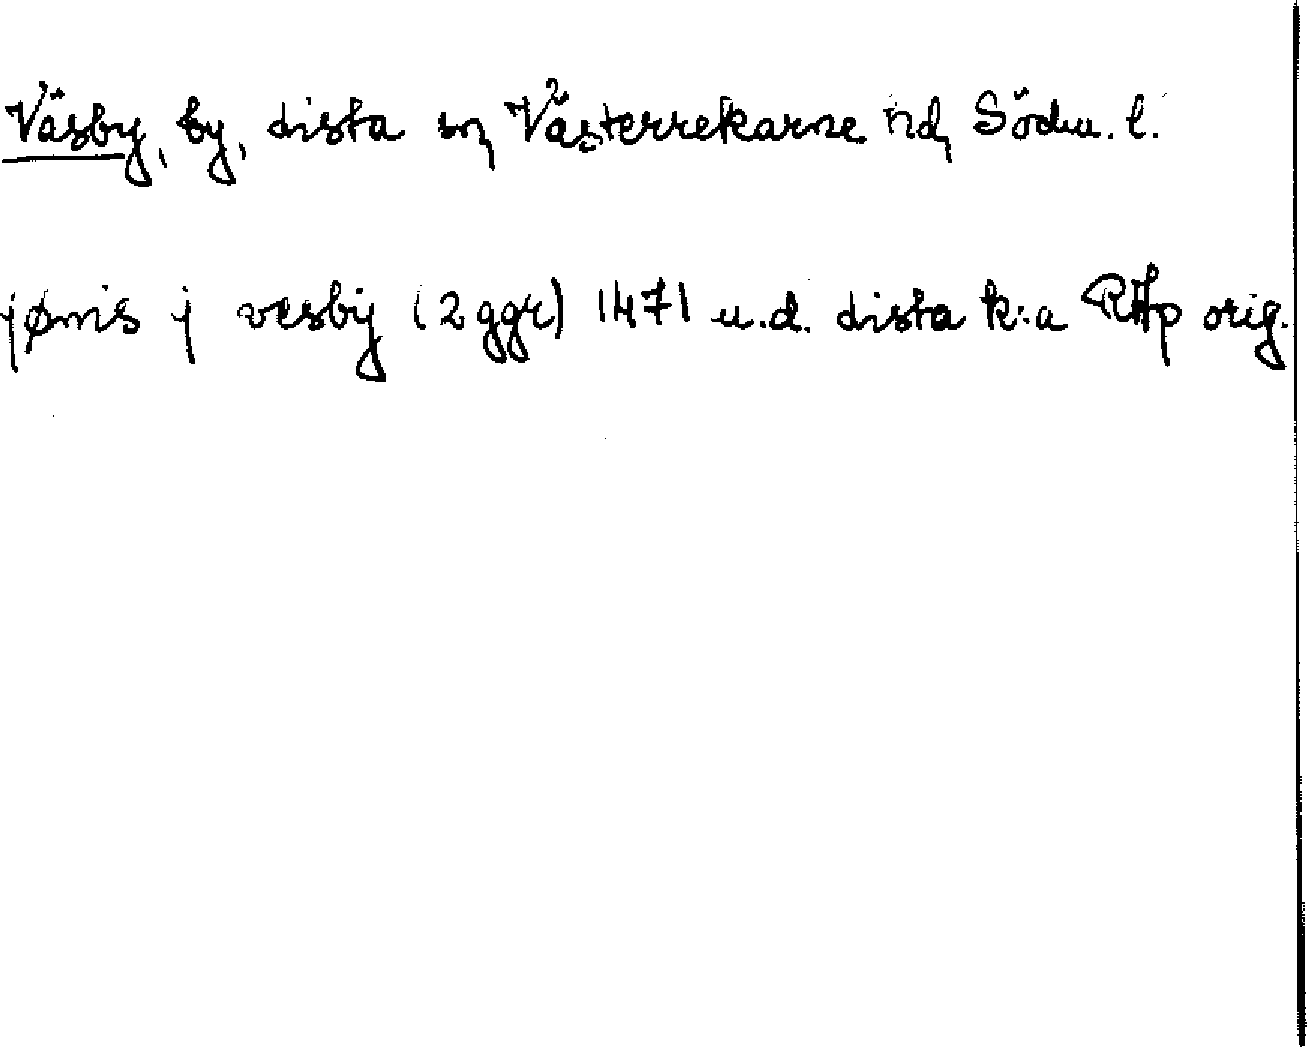 Väsby, by, Lista sn, Västerrekarne hd, Södm. l.
jønis j vesbÿ (2 ggr) 1471 u.d. Lista k:a RAp orig.